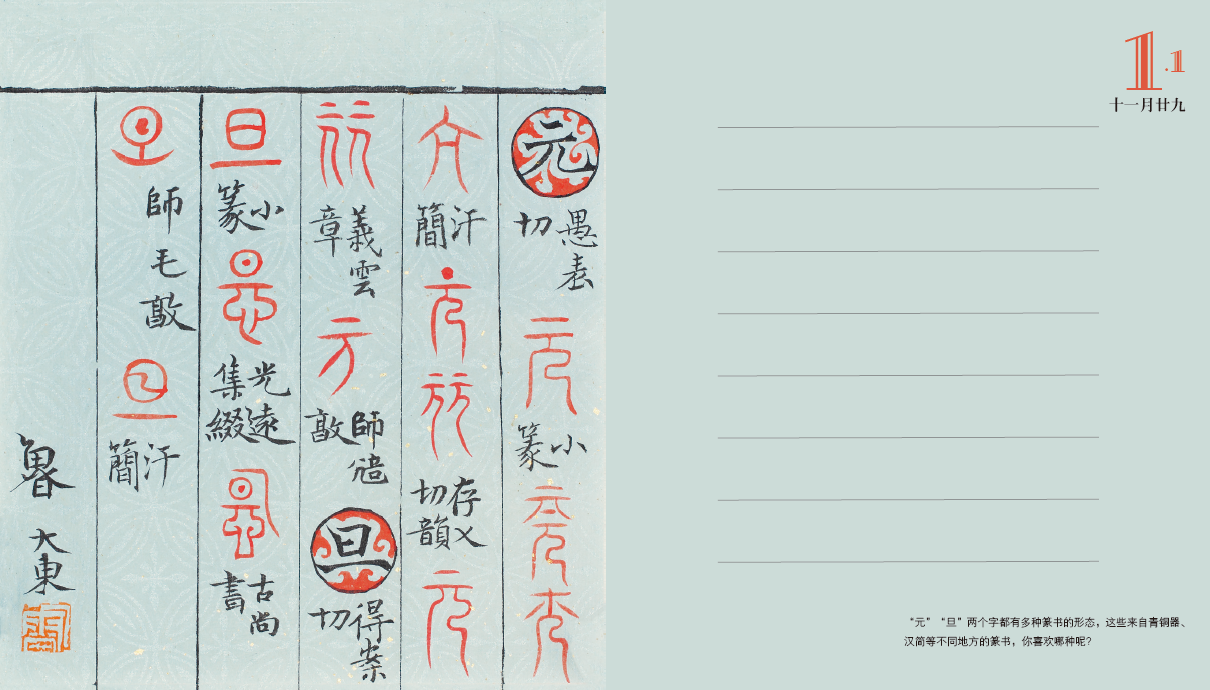 元
愚袁切
元
小篆
元
元
元
汗簡
元
元
存乂切韻
元
元
義雲章
元
師𩛥敦
旦
得案切
旦
小篆
旦
光遠集綴
旦
古尚書
旦
師毛敦
旦
汗簡
魯大東
1.1
十一月廿九
“元”“旦”两个字都有多种篆书的形态，这些来自青铜器、
汉简等不同地方的篆书，你喜欢哪种呢？